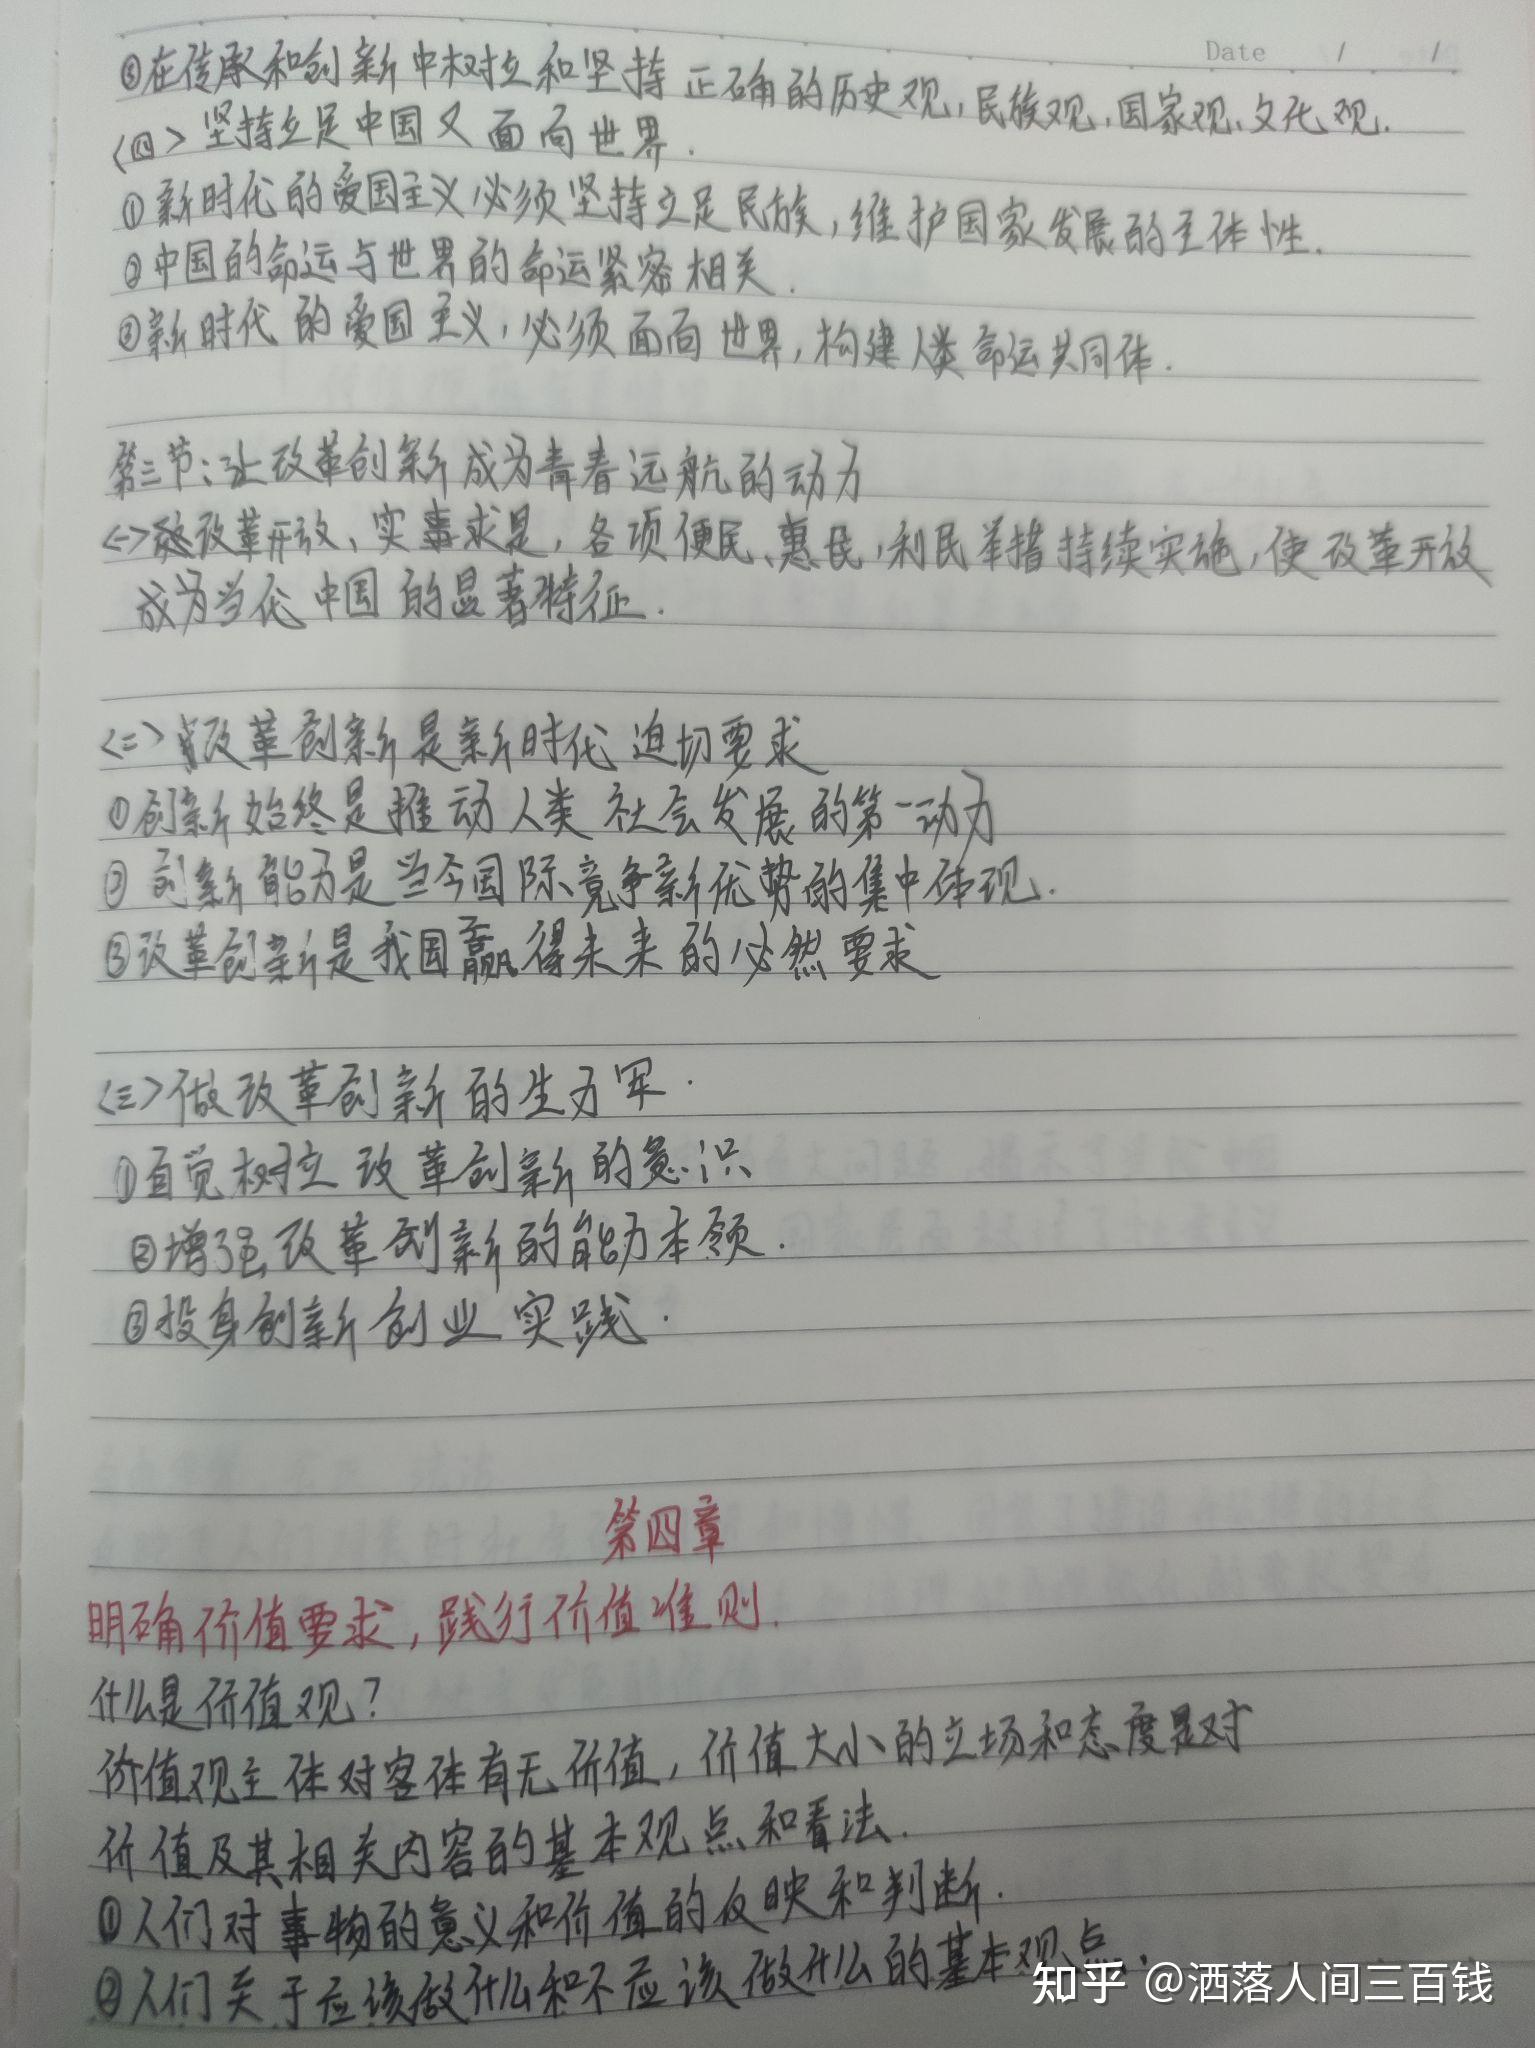 Date / /
⑤在传承和创新中树立和坚持正确的历史观，民族观，国家观、文化观.
<四>坚持立足中国又面向世界.
①新时代的爱国主义必须坚持立足民族，维护国家发展的主体性.
②中国的命运与世界的命运紧密相关.
③新时代的爱国主义，必须面向世界，构建人类命运共同体.
第三节：让改革创新成为青春远航的动力
<一>改革开放、实事求是，各项便民、惠民，利民举措持续实施，使改革开放
成为当代中国的显著特征.
<二>改革创新是新时代迫切要求
①创新始终是推动人类社会发展的第一动力
②创新能力是当今国际竞争新优势的集中体现.
③改革创新是我国赢得未来的必然要求
<三>做改革创新的生力军.
①自觉树立改革创新的意识
②增强改革创新的能力本领.
③投身创新创业实践.
第四章
明确价值要求，践行价值准则.
什么是价值观？
价值观主体对客体有无价值，价值大小的立场和态度是对
价值及其相关内容的基本观点和看法.
①人们对事物的意义和价值的反映和判断.
②人们关于应该做什么和不应该做什么的基本观点.
知乎 @洒落人间三百钱